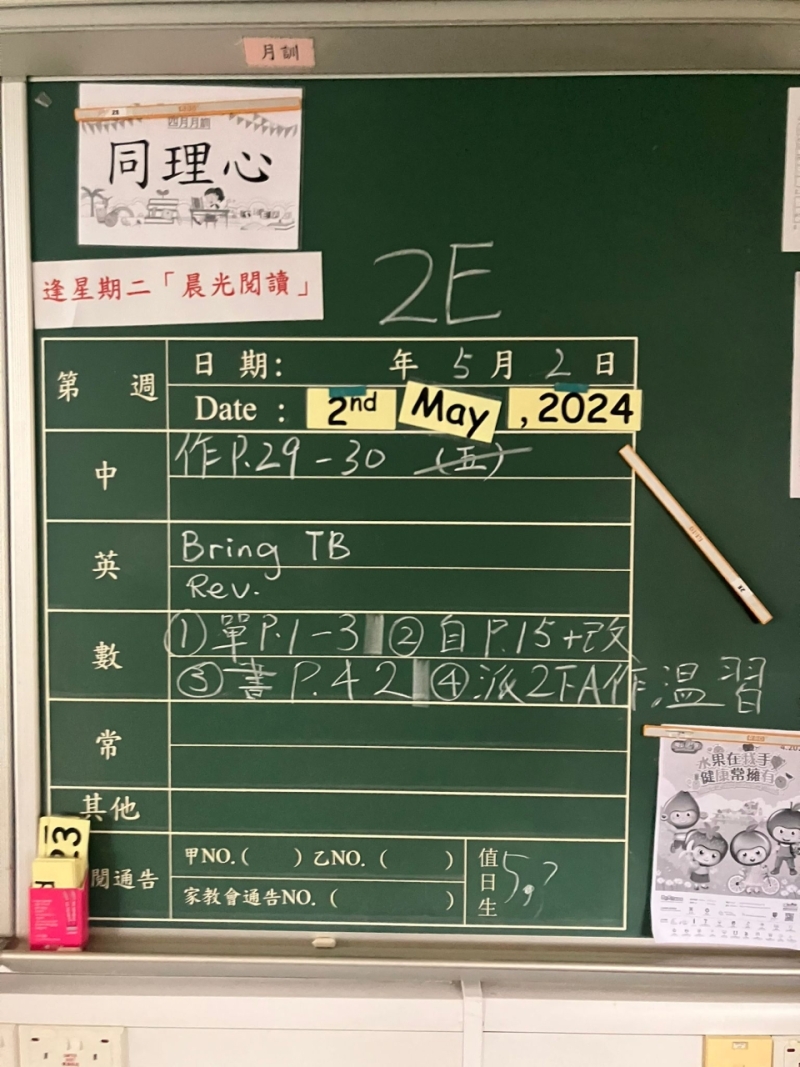 月訓
四月月訓
同理心
逢星期二「晨光閱讀」
2E
第 週
日 期: 年 5 月 2 日
Date : 2nd May , 2024
中
作P.29-30 (五)
英
Bring TB
Rev.
數
①單P.1-3 ②自P.15+改
③書P.42 ④派2下A作,溫習
常
其他
閱通告
甲NO.( ) 乙NO. ( )
家教會通告NO. ( )
值日生
5,?
23
水果在我手
健康常擁有